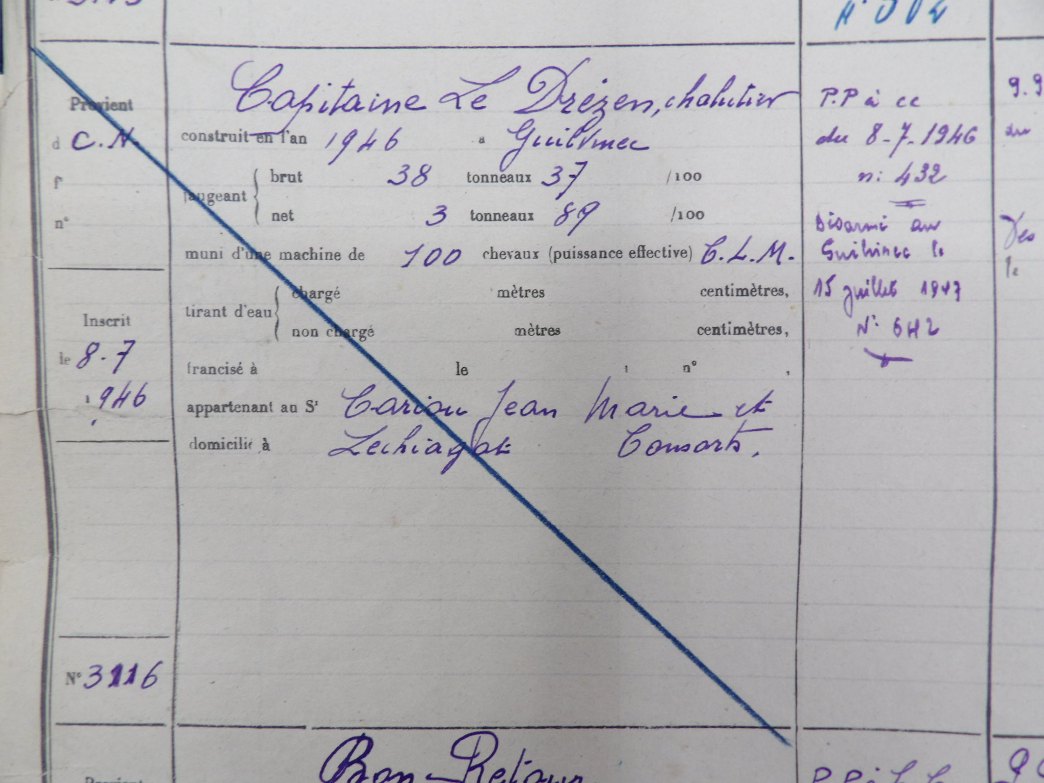 Provient
d C.N.
f°
n°
Inscrit
le 8-7
1946
N° 3116
Capitaine Le Drézen, chalutier
construit en l'an 1946 a Guilvinec
jaugeant { brut 38 tonneaux 37 /100
net 3 tonneaux 89 /100
muni d'une machine de 100 chevaux (puissance effective) C.L.M.
tirant d'eau { chargé mètres centimètres,
non chargé mètres centimètres,
francisé à le n° ,
appartenant au Sr Cariou Jean Marie et
domicilié à Lechiagat Consorts.
Bon-Retour
P.P à ce
du 8-7-1946
n: 432
Désarmé au
Guilvinec le
15 juillet 1947
N° 642
9.9
du
le